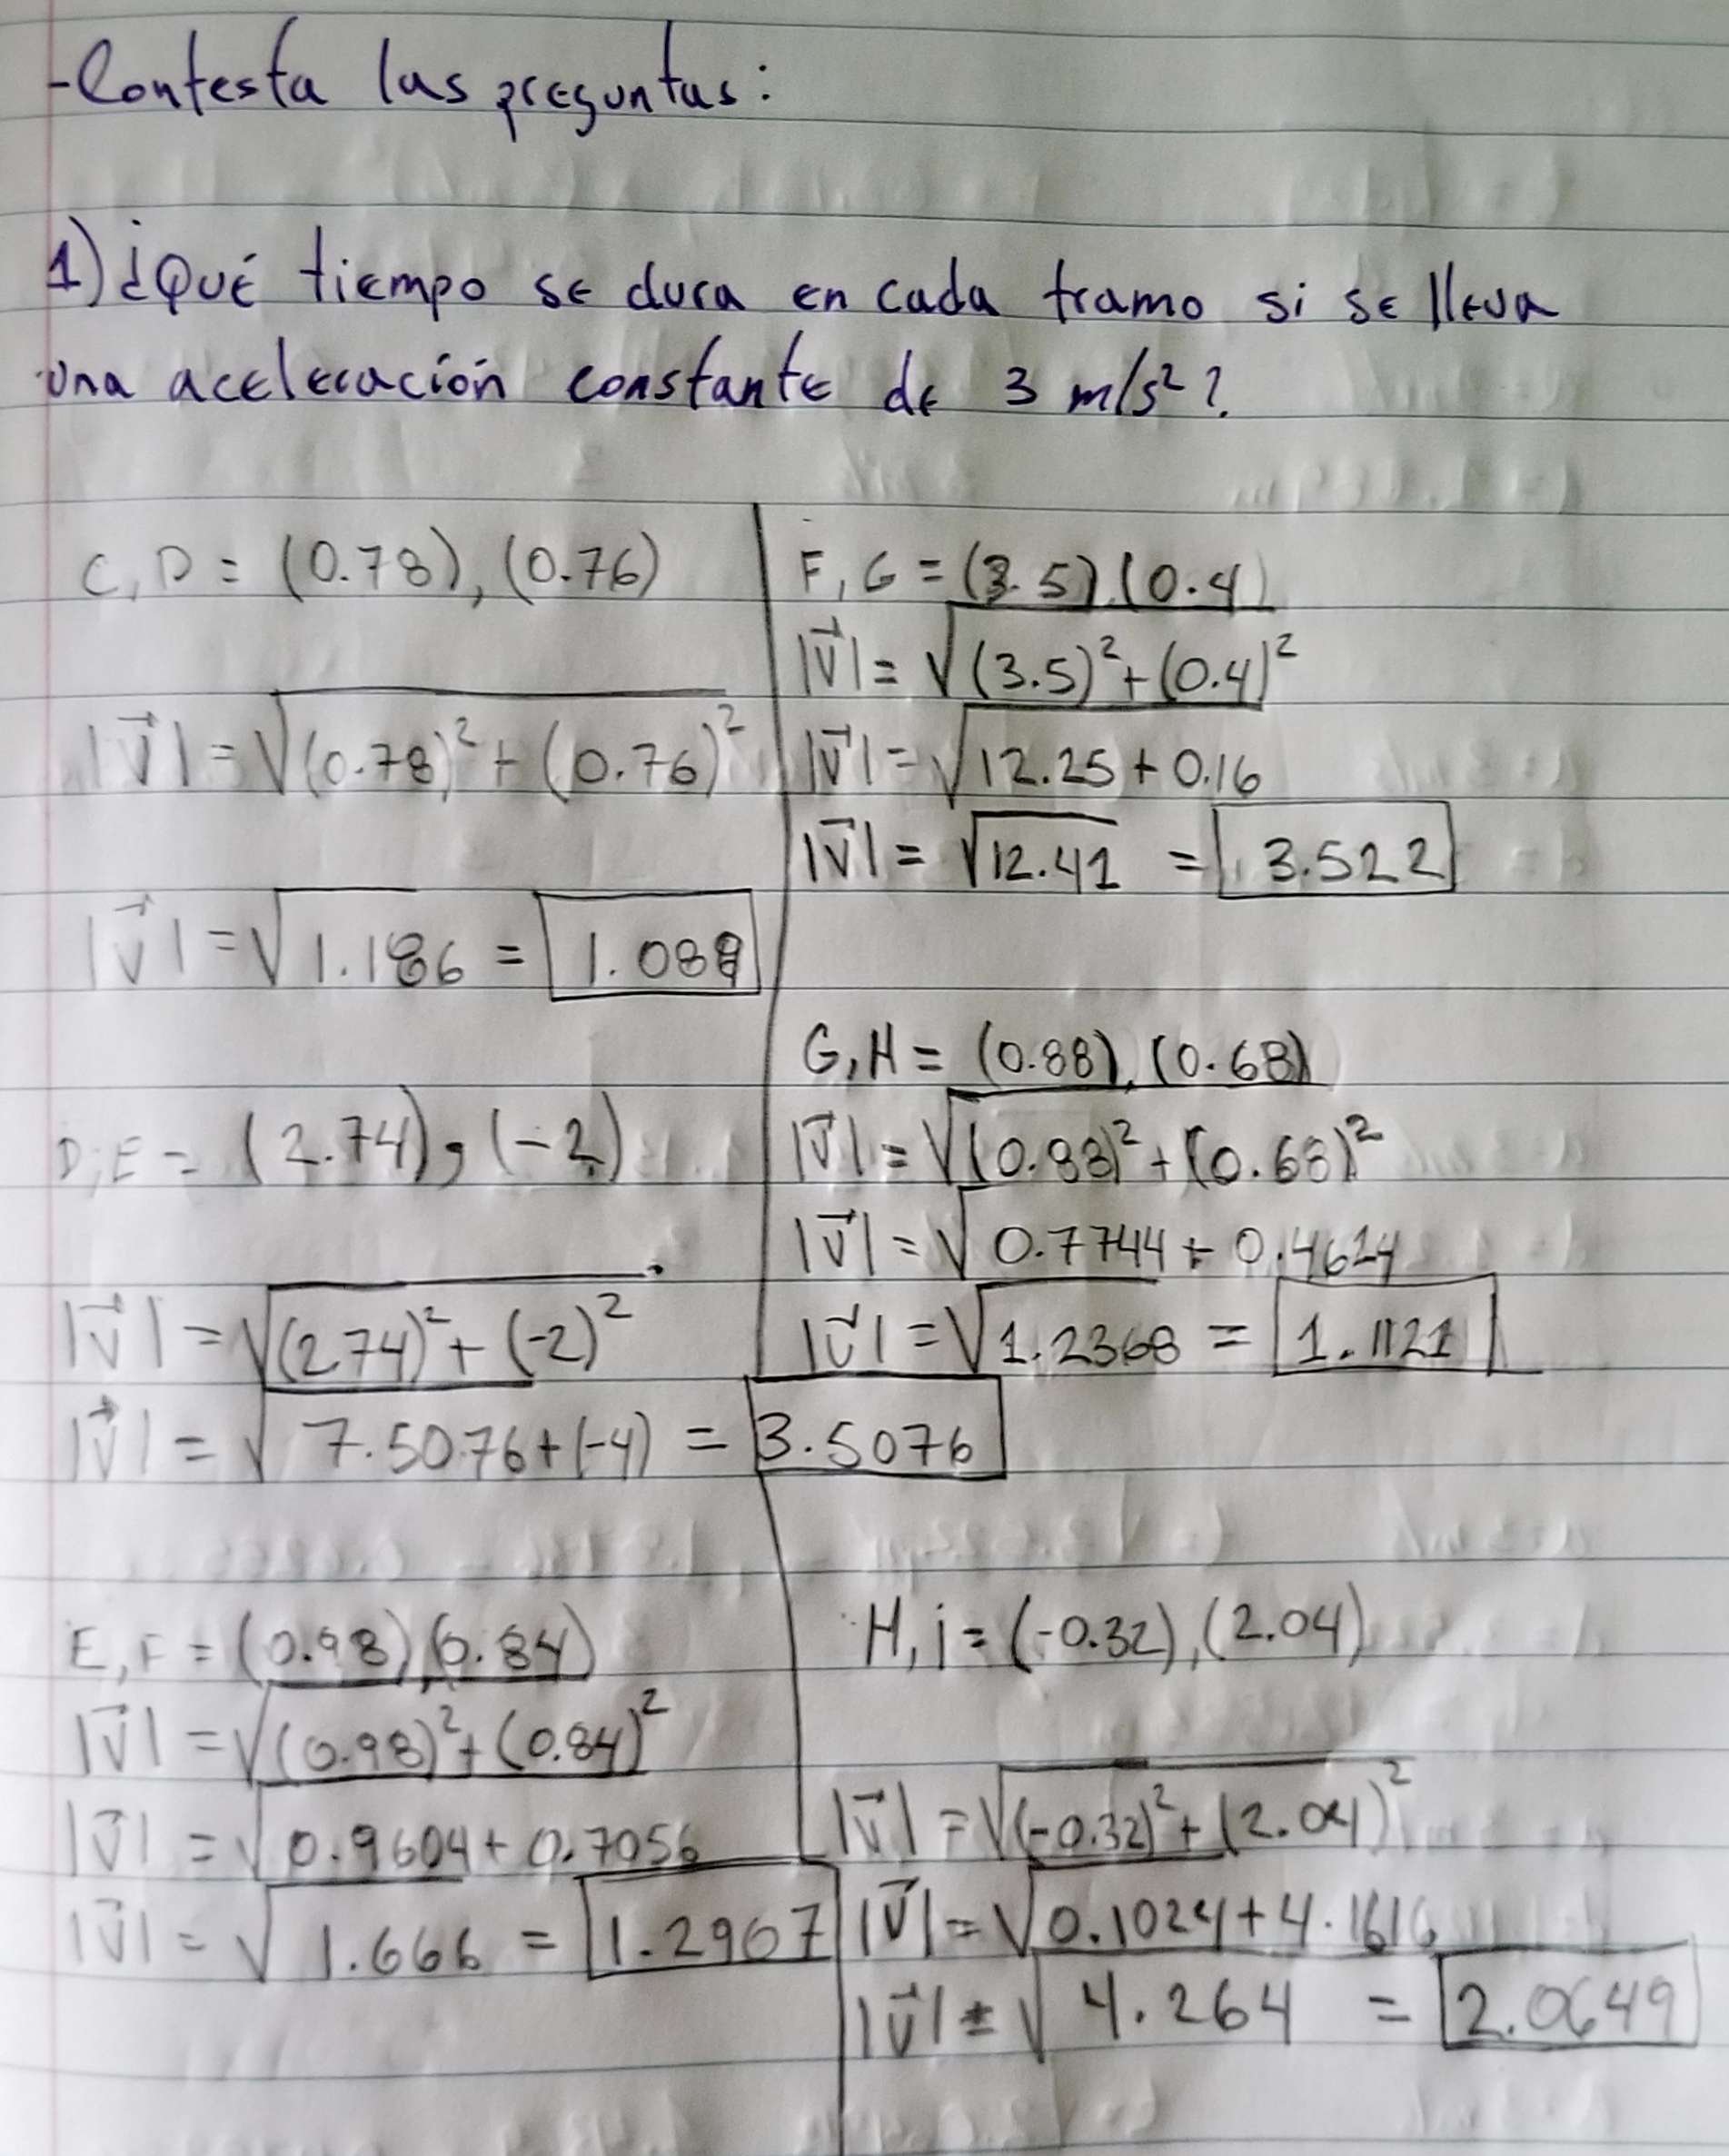 -Contesta las preguntas:
1) ¿Qué tiempo se dura en cada tramo si se lleva
una aceleración constante de 3 m/s² ?
C, D = (0.78), (0.76)
|V⃗| = √(0.78)² + (0.76)²
|V⃗| = √1.186 = 1.089
D,E = (2.74), (-2)
|V⃗| = √(2.74)² + (-2)²
|V⃗| = √7.5076 + (-4) = 3.5076
E, F = (0.98), (0.84)
|V⃗| = √(0.98)² + (0.84)²
|V⃗| = √0.9604 + 0.7056
|V⃗| = √1.666 = 1.2907
F, G = (3.5), (0.4)
|V⃗| = √(3.5)² + (0.4)²
|V⃗| = √12.25 + 0.16
|V⃗| = √12.41 = 3.522
G, H = (0.88), (0.68)
|V⃗| = √(0.88)² + (0.68)²
|V⃗| = √0.7744 + 0.4624
|V⃗| = √1.2368 = 1.1121
H, i = (-0.32), (2.04)
|V⃗| = √(-0.32)² + (2.04)²
|V⃗| = √0.1024 + 4.1616
|V⃗| = √4.264 = 2.0649